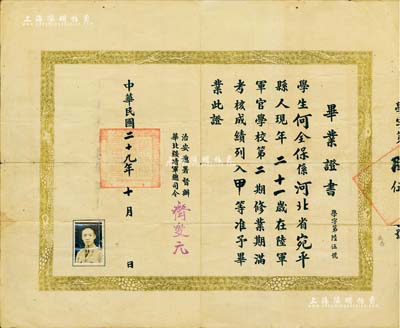 上海陽明拍賣
畢業證書
學字第陸伍號
學生何全保係河北省宛平
縣人現年二十一歲在陸軍
軍官學校第二期修業期滿
考核成績列入甲等准予畢
業此證
治安總署督辦
華北綏靖軍總司令
齊燮元
中華民國二十九年十月 日
上海陽明拍賣